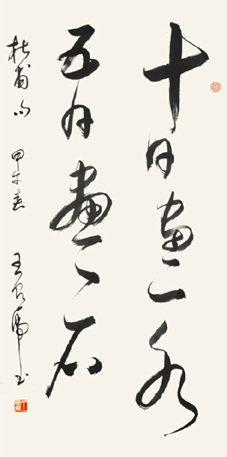 十日畫一水
五日畫一石
杜甫句 甲午春 王 書